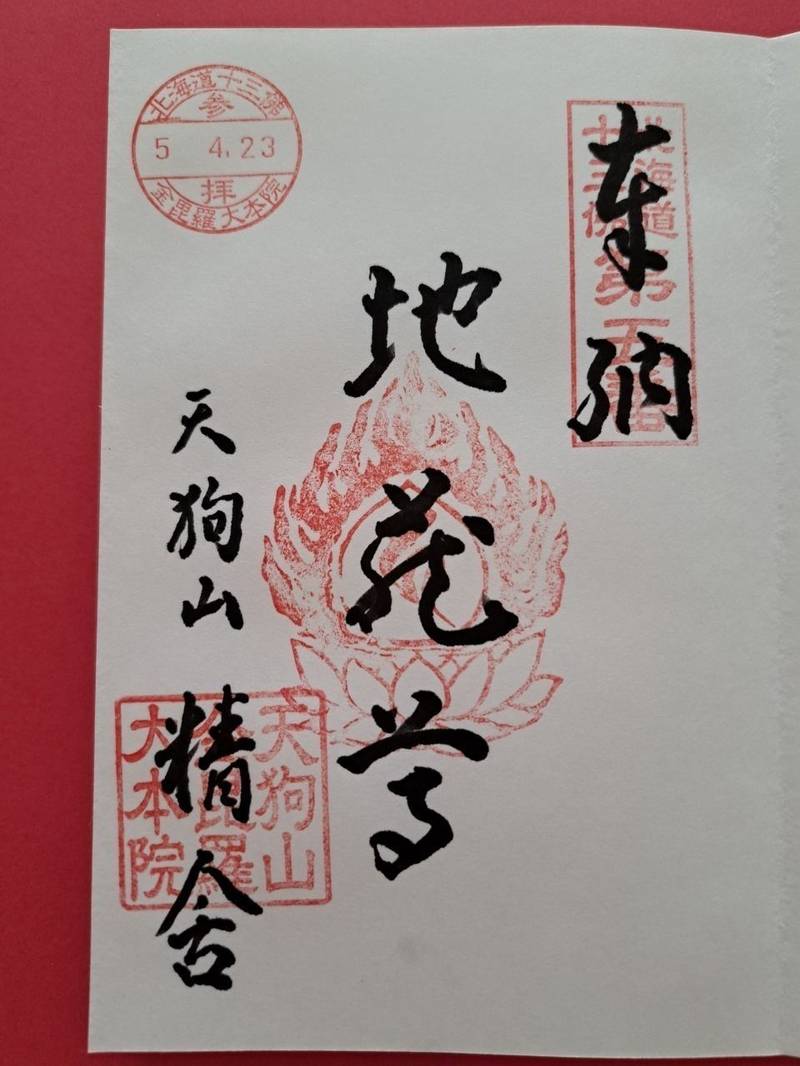 奉納
北海道
十三佛
第五番
地蔵尊
天狗山
精舎
天狗山
金毘羅
大本院
北海道十三佛
参
5 4.23
拝
金毘羅大本院